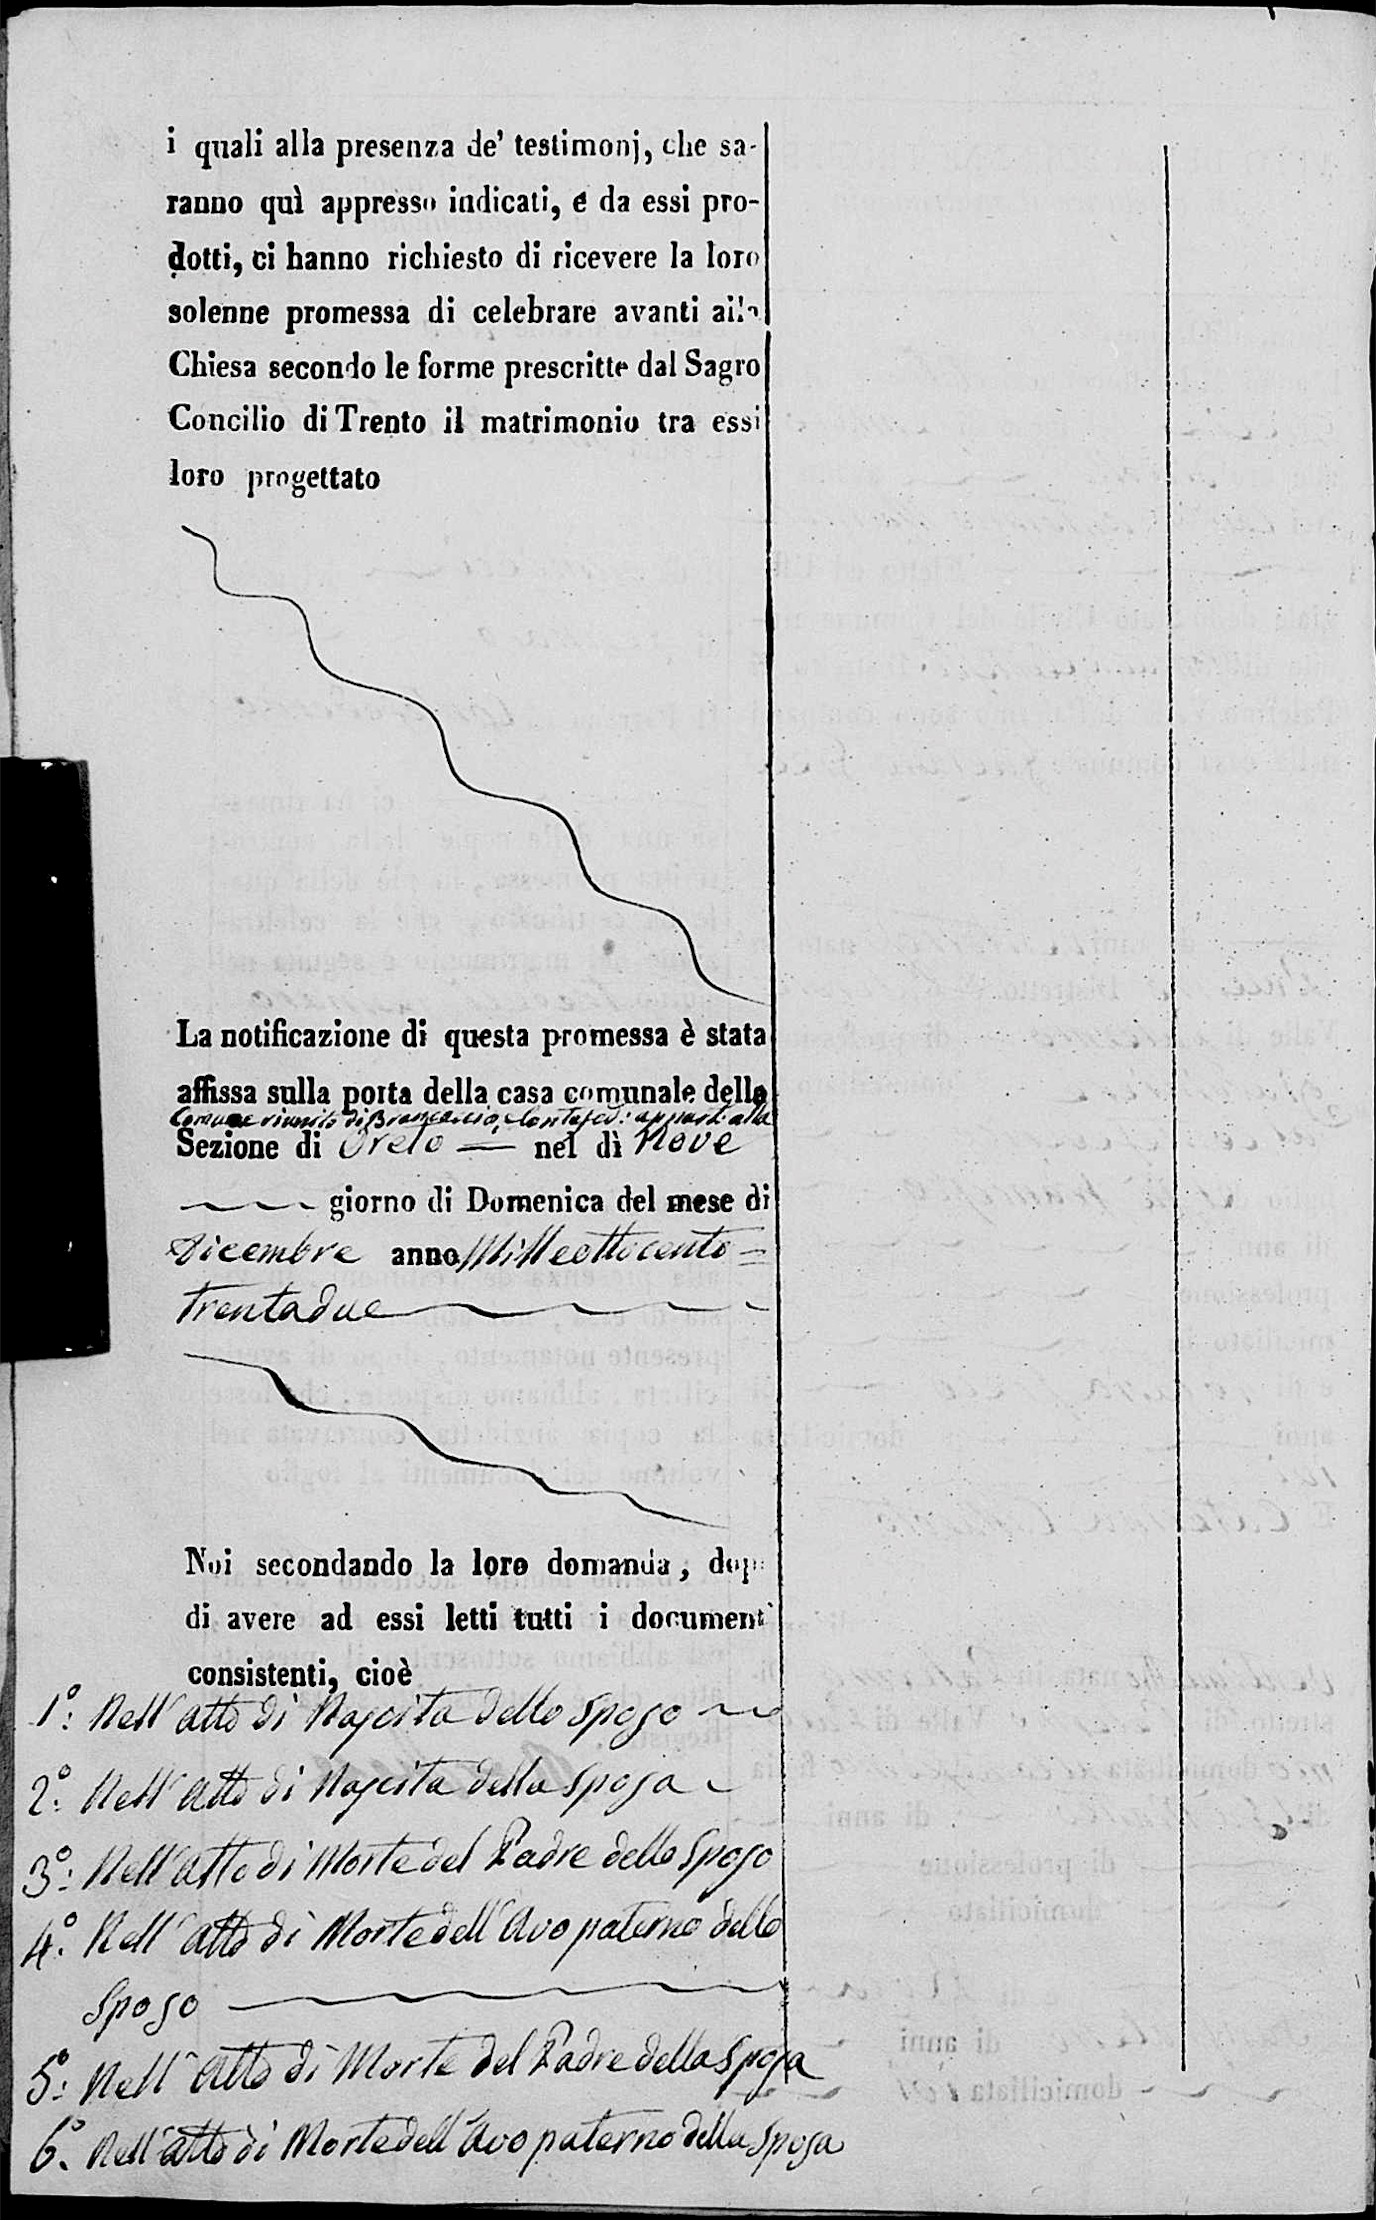 i quali alla presenza de' testimonj, che sa-
ranno quì appresso indicati, e da essi pro-
dotti, ci hanno richiesto di ricevere la loro
solenne promessa di celebrare avanti alla
Chiesa secondo le forme prescritte dal Sagro
Concilio di Trento il matrimonio tra essi
loro progettato
La notificazione di questa promessa è stata
affissa sulla porta della casa comunale della
Comune riunito di Brancaccio, Contased: appart: alla
Sezione di Oreto nel dì Nove
giorno di Domenica del mese di
Dicembre anno Milleottocento=
trentadue
Noi secondando la loro domanda, dopo
di avere ad essi letti tutti i documenti
consistenti, cioè
1º: Nell'atto di Nascita dello Sposo
2º: Nell'atto di Nascita della Sposa
3º: Nell'atto di Morte del Padre dello Sposo
4º: Nell'atto di Morte dell'Avo paterno dello
Sposo
5º: Nell'atto di Morte del Padre della Sposa
6º. Nell'atto di Morte dell'Avo paterno della Sposa